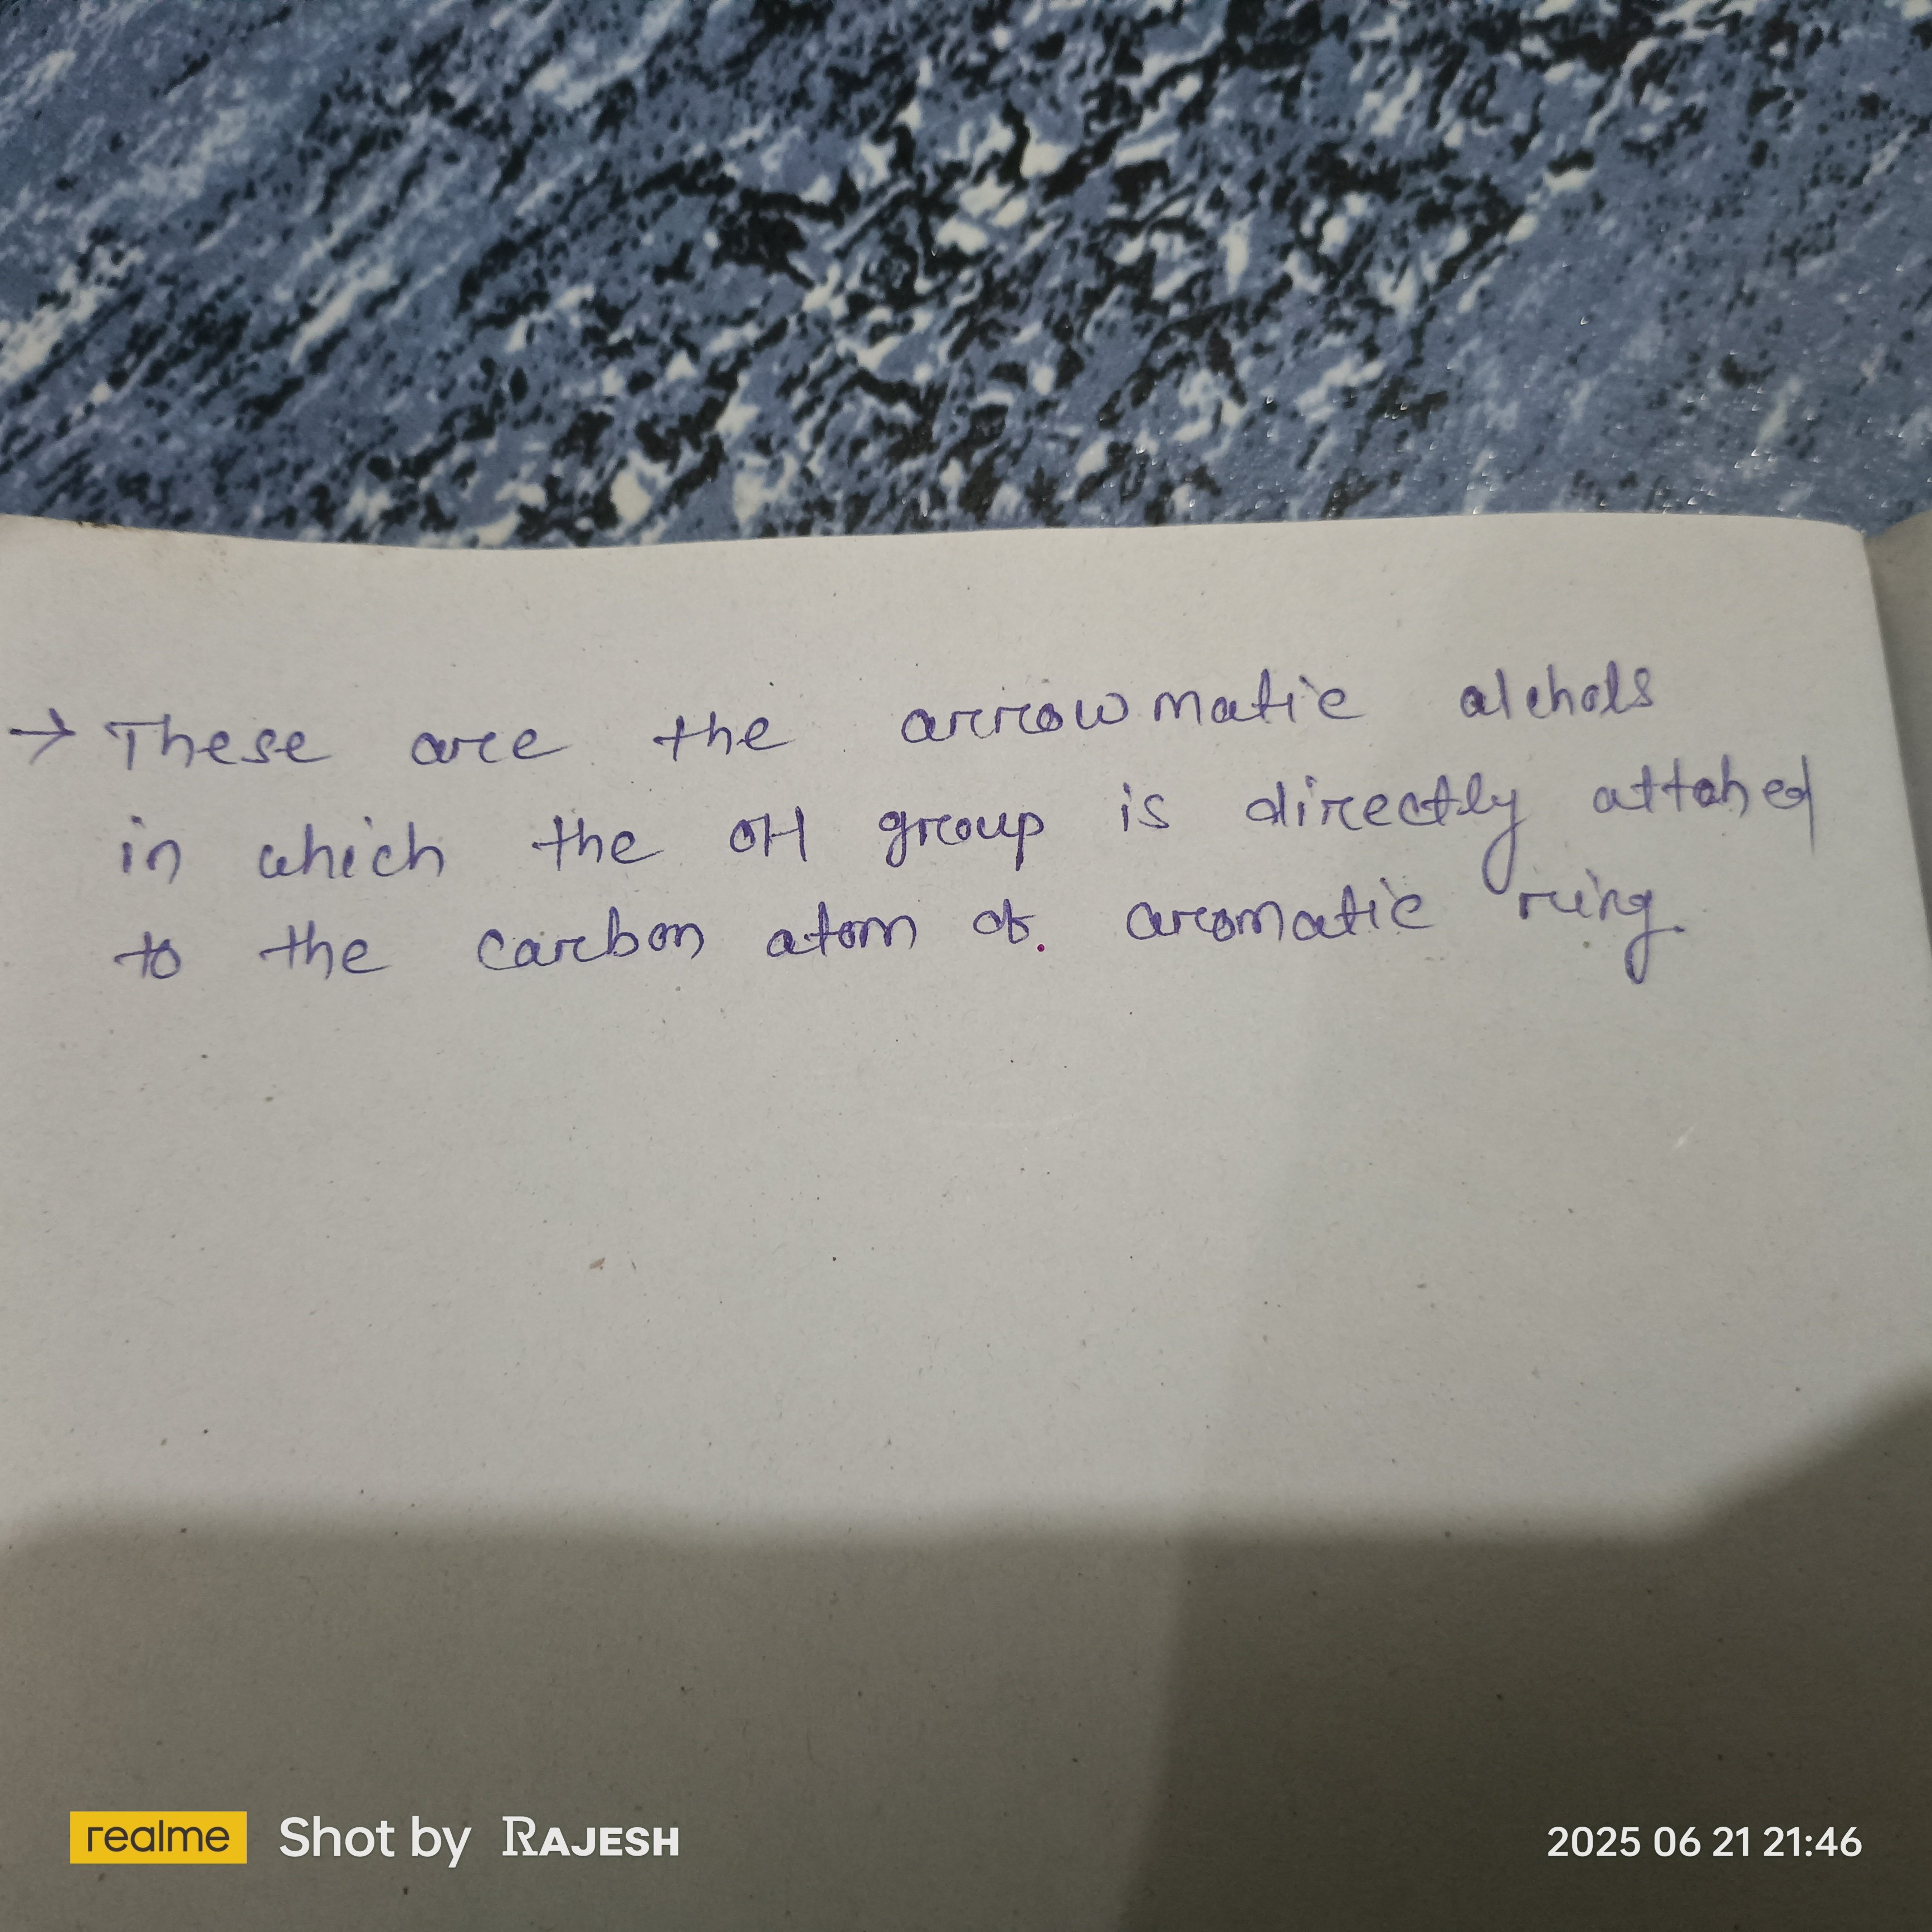 → These are the arrowmatic alchols
in which the OH group is directly attahed
to the carbon atom of. aromatic ring.
realme Shot by RAJESH
2025 06 21 21:46